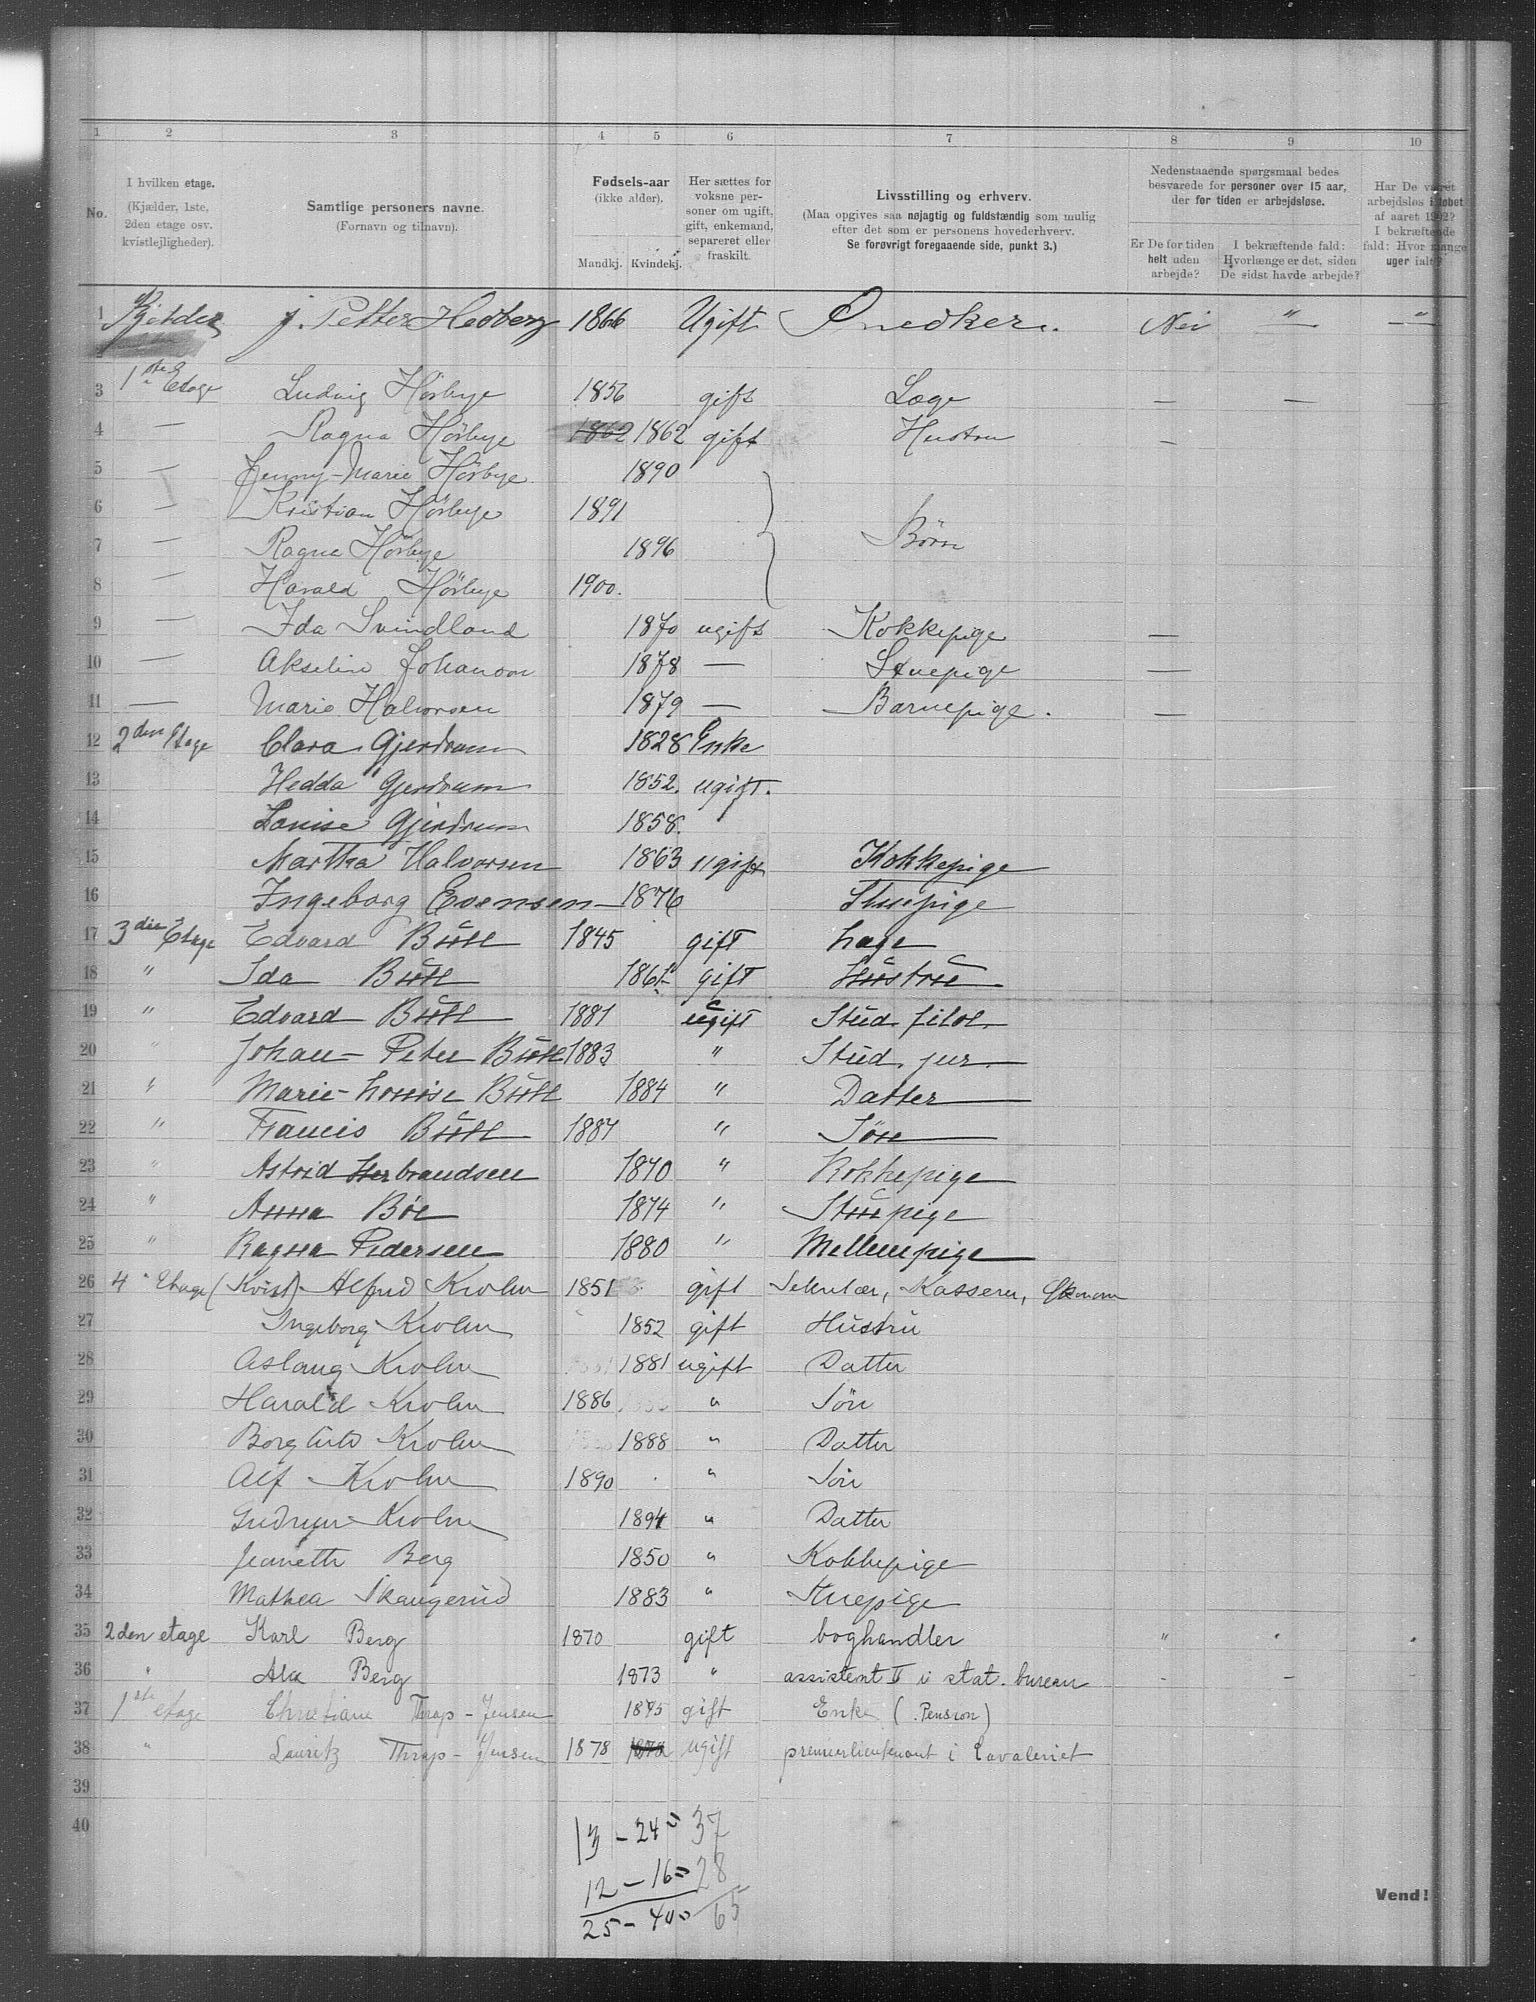 1 2 3 4 5 6 7 8 9 10
No.
I hvilken etage.
(Kjælder, 1ste,
2den etage osv.
kvistlejligheder).
Samtlige personers navne.
(Fornavn og tilnavn).
Fødsels-aar
(ikke alder).
Mandkj. Kvindekj.
Her sættes for
voksne per-
soner om ugift,
gift, enkemand,
separeret eller
fraskilt.
Livsstilling og erhverv.
(Maa opgives saa nøjagtig og fuldstændig som mulig
efter det som er personens hovederhverv.
Se forøvrigt foregaaende side, punkt 3.)
Nedenstaaende spørgsmaal bedes
besvarede for personer over 15 aar,
der for tiden er arbejdsløse.
Er De for tiden
helt uden
arbejde?
I bekræftende fald:
Hvorlænge er det, siden
De sidst havde arbejde?
Har De været
arbejdsløs i løbet
af aaret 1902?
I bekræftende
fald: Hvor mange
uger ialt?
1 Kjelder J. Petter Hedberg 1866 Ugift Snedker. Nei " "
2
3 1ste Etage Ludvig Hörbye 1856 gift Læge — —
4 — Ragna Hörbye 1862 1862 gift Hustru —
5 — Jenny-Marie Hörbye 1890
6 — Kristian Hörbye 1891
7 — Ragna Hörbye 1896 Börn
8 — Harald Hörbye 1900.
9 — Ida Svindland 1870 ugift Kokkepige —
10 — Akseline Johanson 1878 — Stuepige —
11 — Marie Halvorsen 1879 — Barnepige. —
12 2den Etage Clara Gjerdrum 1828 Enke
13 Hedda Gjerdrum 1852. ugift.
14 Louise Gjerdrum 1858.
15 Martha Halvorsen 1863 ugift Kokkepige
16 Ingeborg Evensen 1876 Stuepige
17 3die Etage Edvard Bull 1845 gift Læge
18 " Ida Bull 1861 gift Hustrue
19 " Edvard Bull 1881 ugift Stud. filol.
20 " Johan-Peter Bull 1883 " Stud. jur.
21 " Marie-Louise Bull 1884 " Datter
22 " Francis Bull 1887 " Søn
23 " Astrid Herbrandsen 1870 " Kokkepige
24 " Anna Böe 1874 " Stuepige
25 " Ragna Pedersen 1880 " Mellempige
26 4 Etage (Kvist) Alfred Krohn 1851 gift Sekretær, Kasserer, Økonom
27 Ingeborg Krohn 1852 gift Hustru
28 Aslaug Krohn 1881 ugift Datter
29 Harald Krohn 1886 " Sön
30 Borghild Krohn 1888 " Datter
31 Alf Krohn 1890 " Sön
32 Gudrun Krohn 1894 " Datter
33 Jeanette Berg 1850 " Kokkepige
34 Mathea Skaugerud 1883 " Stuepige
35 2den etage Karl Berg 1870 gift boghandler " " "
36 " Ala Berg 1873 " assistent II i stat. bureau - -
37 1ste etage Christiane Thrap-Jensen gift Enke (Pension)
38 " Lauritz Thrap-Jensen 1878 ugift premierlieutenant i Kavaleriet
39
40
13 - 24 = 37
12 - 16 = 28
25 - 40 = 65
Vend!